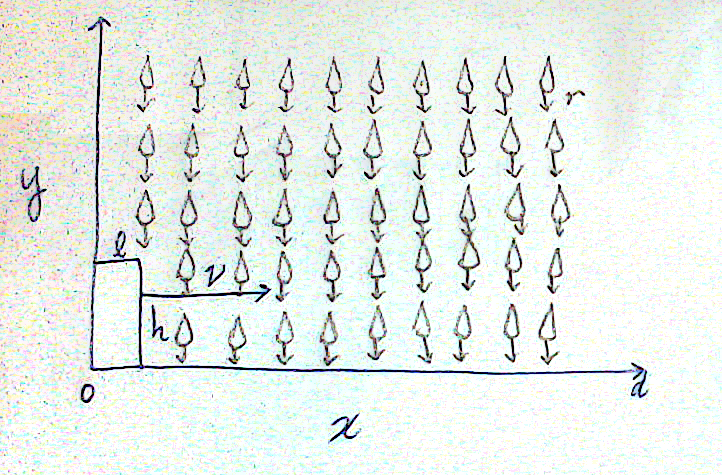 y
r
l
v
h
0
d
x